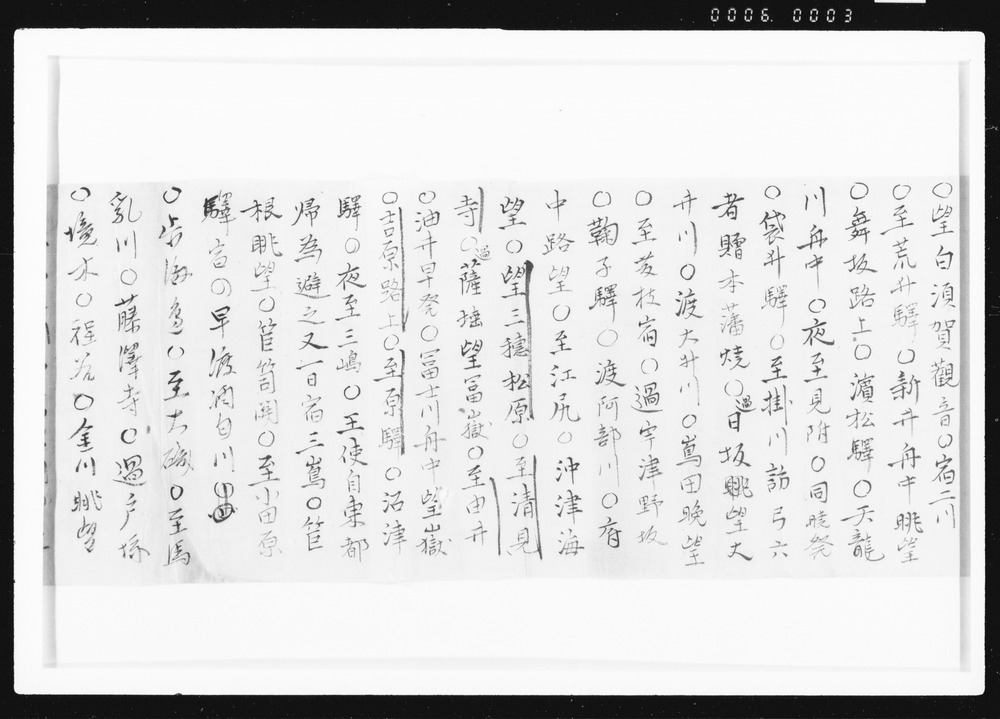 0006. 0003
○望白須賀觀音○宿二川
○至荒井驛○新井舟中眺望
○舞坂路上○濵松驛○天龍
川舟中○夜至見附○同曉發
○袋井驛○至掛川訪弓六
者贈本藩燒○過日坂眺望大
井川○渡大井川○嶌田晩望
○至荗枝宿○過宇津野坂
○鞠子驛○渡阿部川○府
中路望○至江尻○沖津海
望○望三穗松原○至清見
寺○過薩埵望冨嶽○至由井
○油井早発○冨士川舟中望嶽
○吉原路上○至原驛○沼津
驛○夜至三嶋○王使自東都
帰為避之又一日宿三嶌○筥
根眺望○筥笥関○至小田原
驛宿○早渡酒匂川
○至大磯○至馬
乱川○藤澤寺○過戸塚
○境木○程谷○金川眺望